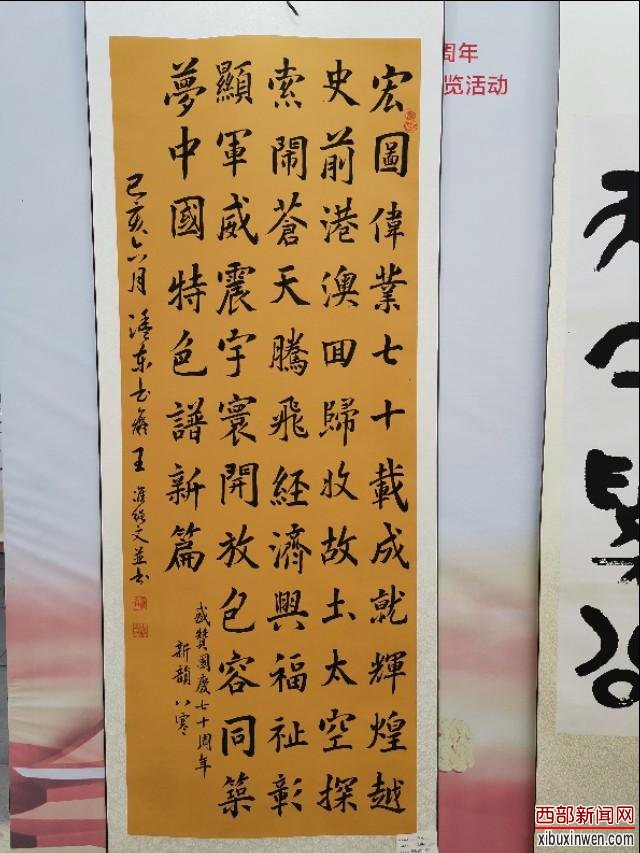 周年
览活动
宏圖偉業七十載成就輝煌越
史前港澳回歸收故土太空探
索鬧蒼天騰飛經濟興福祉彰
顯軍威震宇寰開放包容同築
夢中國特色譜新篇
盛贊國慶七十周年
新韻八寒
己亥六月 东 王 文並书
西部新闻网
xibuxinwen.com